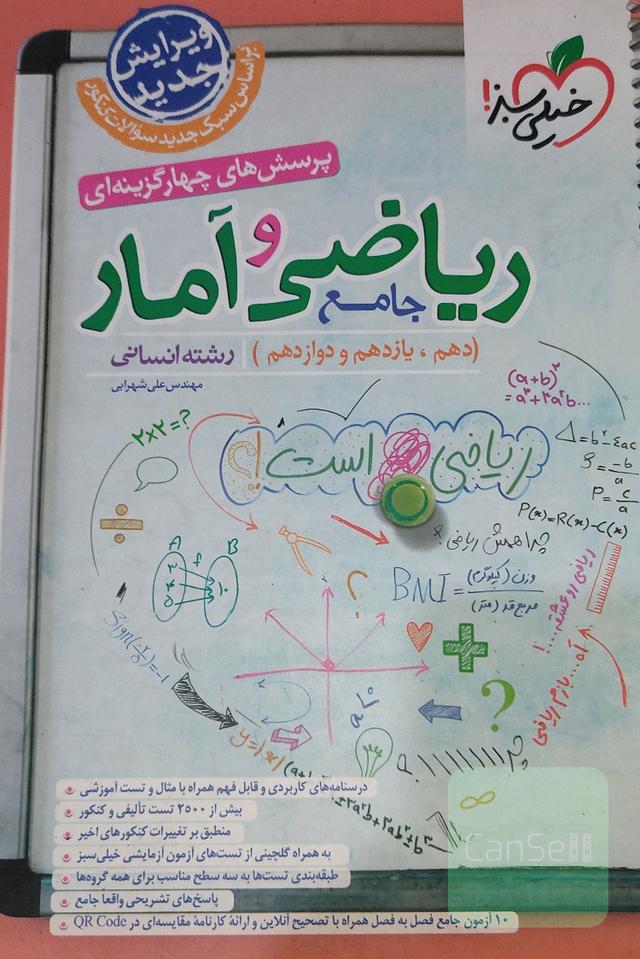 ویرایش
جدید
براساس سبک جدید سؤالات کنکور
خیلی سبز!
پرسش‌های چهارگزینه‌ای
ریاضی و آمار
جامع
(دهم ، یازدهم و دوازدهم) رشته انسانی
مهندس علی شهرابی
(a+b)²
= a³+3a²b...
۲×۲=؟
ریاضی است؟!
Δ=b²-4ac
S=-b/a
P=c/a
P(x)=R(x)-C(x)
چرا همش ریاضی؟
A f B
BMI = وزن (کیلوگرم) / مربع قد (متر)
ریاضی رو عشقه...!
آه... بازم ریاضی
y=|x|
چرا
درسنامه‌های کاربردی و قابل فهم همراه با مثال و تست آموزشی
بیش از ۲۵۰۰ تست تألیفی و کنکور
منطبق بر تغییرات کنکورهای اخیر
به همراه گلچینی از تست‌های آزمون آزمایشی خیلی‌سبز
طبقه‌بندی تست‌ها به سه سطح مناسب برای همه گروه‌ها
پاسخ‌های تشریحی واقعا جامع
۱۰ آزمون جامع فصل به فصل همراه با تصحیح آنلاین و ارائه کارنامه مقایسه‌ای در QR Code
CanSell